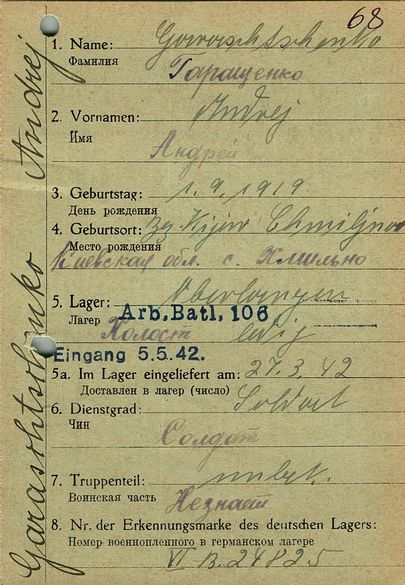 68
1. Name: Garaschtschenko
Фамилия Гаращенко
2. Vornamen: Andrej
Имя Андрей
3. Geburtstag: 1.9.1919
День рождения
4. Geburtsort: Bz. Kijew Chmiljnow
Место рождения
Киевская обл. с. Хмильно
5. Lager: Oberlangen
Лагер Arb. Batl. 106
Холост ledig
Eingang 5.5.42.
5a. Im Lager eingeliefert am: 27.3.42
Доставлен в лагер (число)
6. Dienstgrad: Soldat
Чин Солдат
7. Truppenteil: unbek.
Воинская часть Незнает
8. Nr. der Erkennungsmarke des deutschen Lagers:
Номер военнопленного в германском лагере
VI B. 24825
Garaschtschenko Andrej